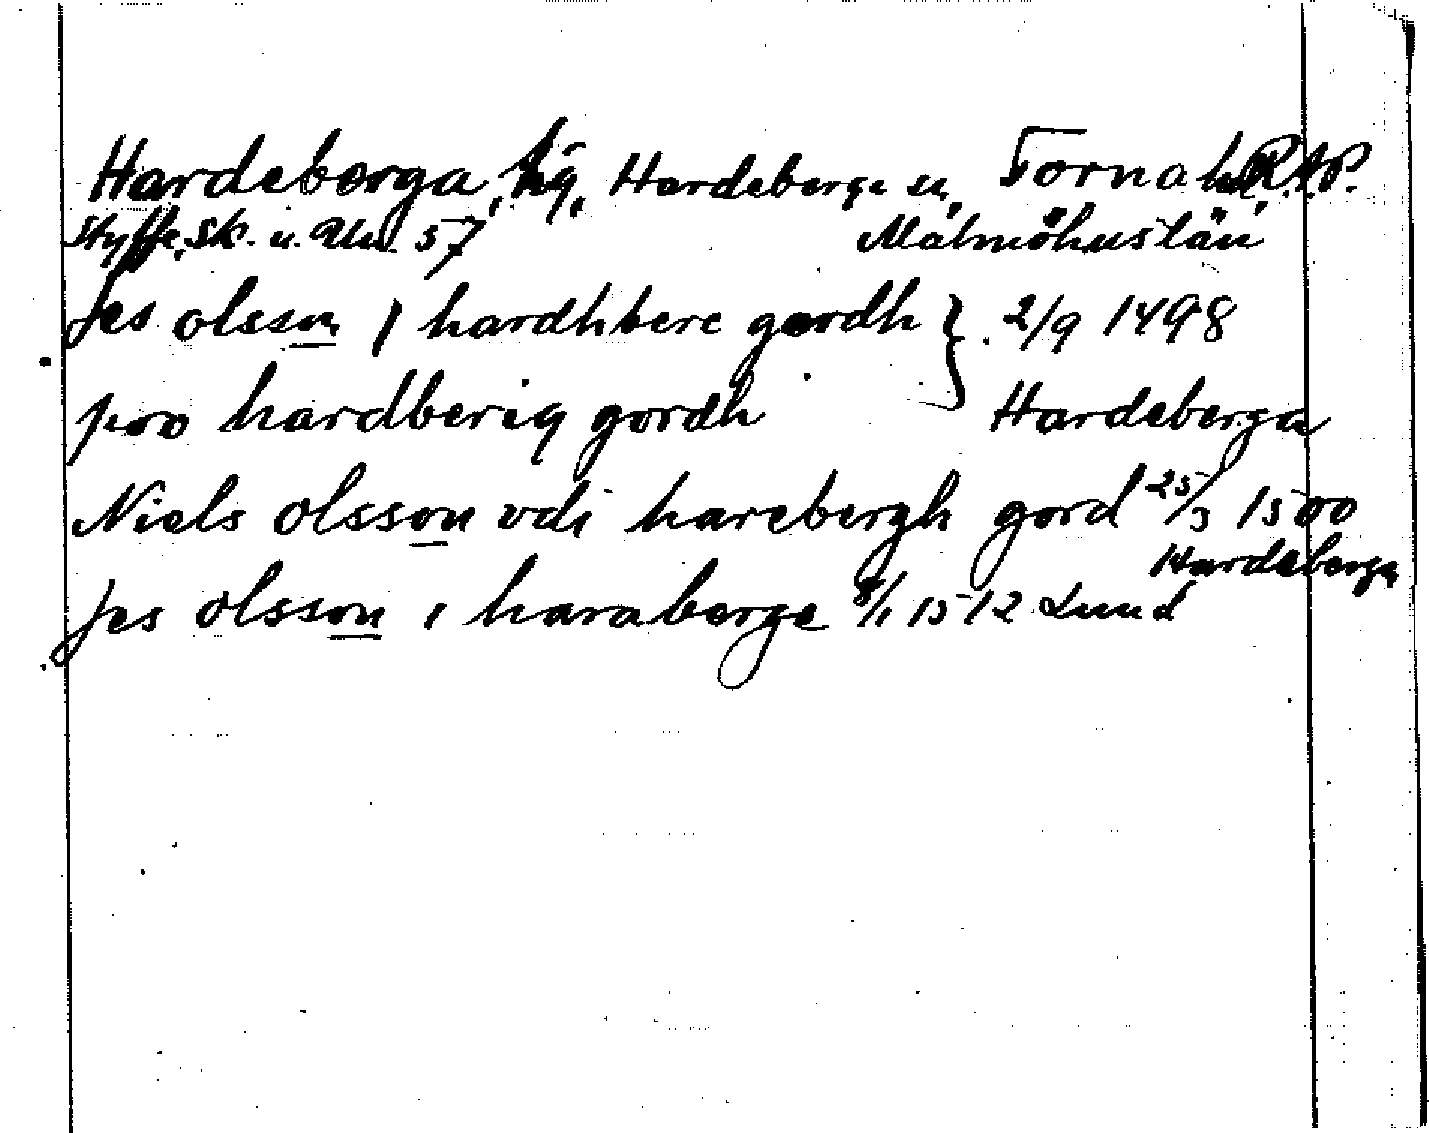 Hardeberga, hg, Hardeberga sn, Torna hd, R.A.P.
Styffe, Sk. u. Un. 57 Malmöhus län
Jes olsson j hardhberc gordh } 2/9 1498
pro hardberig gordh Hardeberga
Niels olsson vdi harebergh gord 25/3 1500
Hardeberga
Jes olsson i haraberge 8/1 1512 Lund